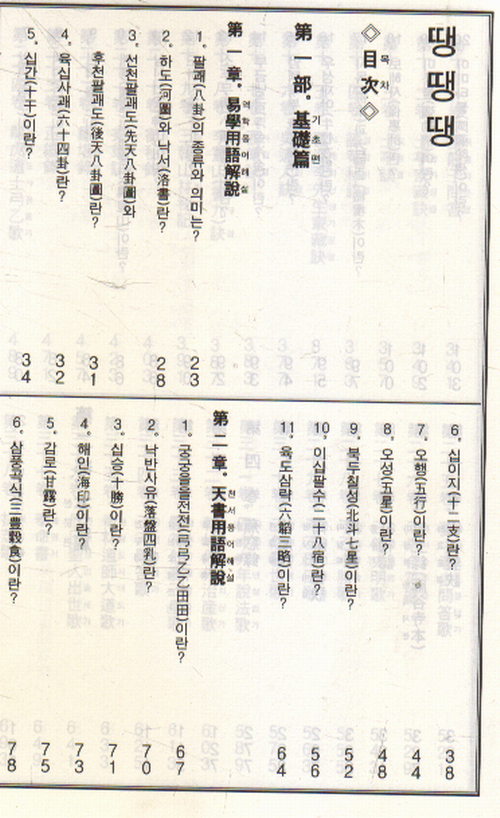 땡땡땡
◇目次◇
목차
第一部. 基礎篇
기초편
第一章. 易學用語解說
역학용어해설
1. 팔괘(八卦)의 종류와 의미는? 23
2. 하도(河圖)와 낙서(洛書)란? 28
3. 선천팔괘도(先天八卦圖)와
후천팔괘도(後天八卦圖)란? 31
4. 육십사괘(六十四卦)란? 32
5. 십간(十干)이란? 34
6. 십이지(十二支)란? 38
7. 오행(五行)이란? 44
8. 오성(五星)이란? 48
9. 북두칠성(北斗七星)이란? 52
10. 이십팔수(二十八宿)란? 56
11. 육도삼략(六韜三略)이란? 64
第二章. 天書用語解說
천서용어해설
1. 궁궁을을전전(弓弓乙乙田田)이란? 67
2. 낙반사유(落盤四乳)란? 70
3. 십승(十勝)이란? 71
4. 해인(海印)이란? 73
5. 감로(甘露)란? 75
6. 삼풍곡식(三豊穀食)이란? 78